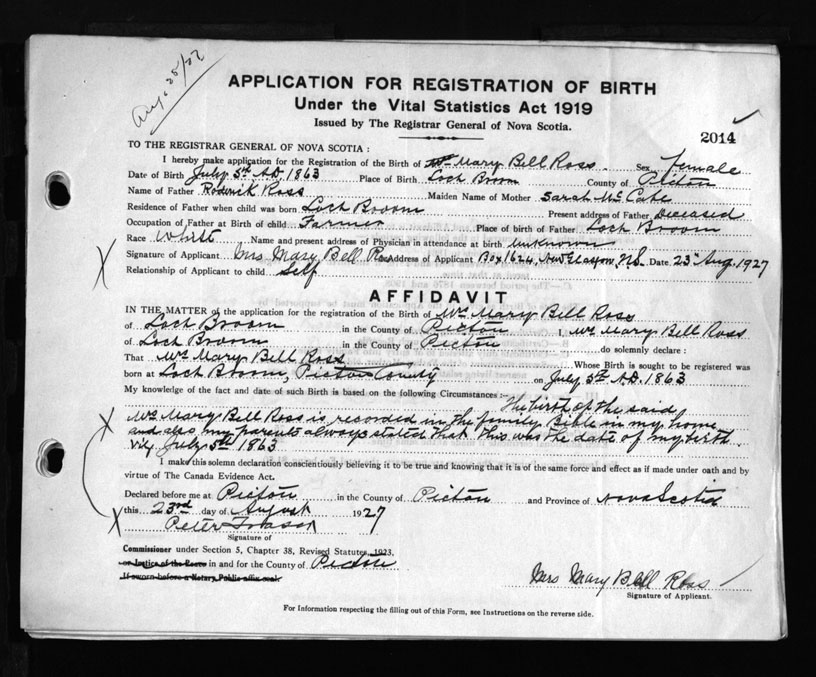 Aug 25/27
APPLICATION FOR REGISTRATION OF BIRTH
Under the Vital Statistics Act 1919
Issued by The Registrar General of Nova Scotia.
2014
TO THE REGISTRAR GENERAL OF NOVA SCOTIA :
I hereby make application for the Registration of the Birth of Mary Bell Ross. Sex female
Date of Birth July 5th A.D. 1863 Place of Birth Loch Broom County of Pictou
Name of Father Roderick Ross Maiden Name of Mother Sarah McCabe
Residence of Father when child was born Loch Broom Present address of Father Deceased
Occupation of Father at Birth of child Farmer Place of birth of Father Loch Broom
Race White Name and present address of Physician in attendance at birth unknown
Signature of Applicant Mrs Mary Bell Ross Address of Applicant Box 1624, New Glasgow, N.S. Date 23rd Aug. 1927
Relationship of Applicant to child Self
AFFIDAVIT
IN THE MATTER of the application for the registration of the Birth of Mrs Mary Bell Ross
of Loch Broom in the County of Pictou I, Mrs Mary Bell Ross
of Loch Broom in the County of Pictou do solemnly declare :
That Mrs Mary Bell Ross Whose Birth is sought to be registered was
born at Loch Broom, Pictou County on July 5th A.D. 1863
My knowledge of the fact and date of such Birth is based on the following Circumstances :— The birth of the said
Mrs Mary Bell Ross is recorded in the family Bible in my home
and also my parents always stated that this was the date of my birth
viz. July 5th 1863
I make this solemn declaration conscientiously believing it to be true and knowing that it is of the same force and effect as if made under oath and by
virtue of The Canada Evidence Act.
Declared before me at Pictou in the County of Pictou and Province of Nova Scotia
this 23rd day of August 1927
Peter
Signature of
Commissioner under Section 5, Chapter 38, Revised Statutes, 1923,
or Justice of the Peace in and for the County of Pictou
If sworn before a Notary Public affix seal
Mrs Mary Bell Ross
Signature of Applicant.
For Information respecting the filling out of this Form, see Instructions on the reverse side.